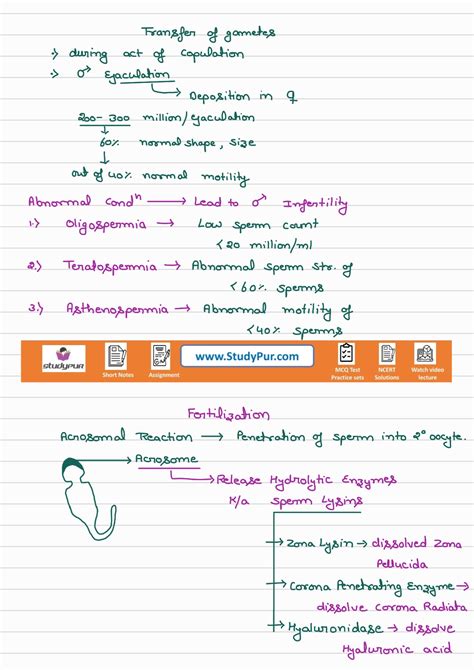 Transfer of gametes
:) during act of Copulation
:) ♂ Ejaculation
→ Deposition in ♀
200-300 million/ejaculation
60% normal shape, size
out of 40% normal motility
Abnormal Condⁿ → Lead to ♂ Infertility
1.) Oligospermia → Low sperm count
<20 million/ml
2.) Teratospermia → Abnormal sperm str. of
<60% sperms
3.) Asthenospermia → Abnormal motility of
<40% sperms
studypur
Short Notes
Assignment
www.StudyPur.com
MCQ Test
Practice sets
NCERT
Solutions
Watch video
lecture
Fortilization
Acrosomal Reaction → Penetration of sperm into 2° oocyte.
Acrosome
→ Release Hydrolytic Enzymes
K/a sperm Lysins
→ Zona Lysin → dissolved Zona
Pellucida
→ Corona Penetrating Enzyme →
dissolve Corona Radiata
→ Hyaluronidase → dissolve
Hyaluronic acid